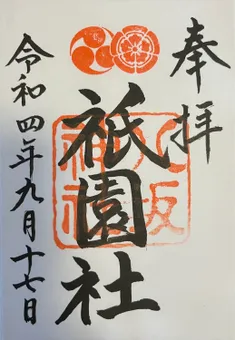 奉拝
八坂神社
祇園社
令和四年九月十七日